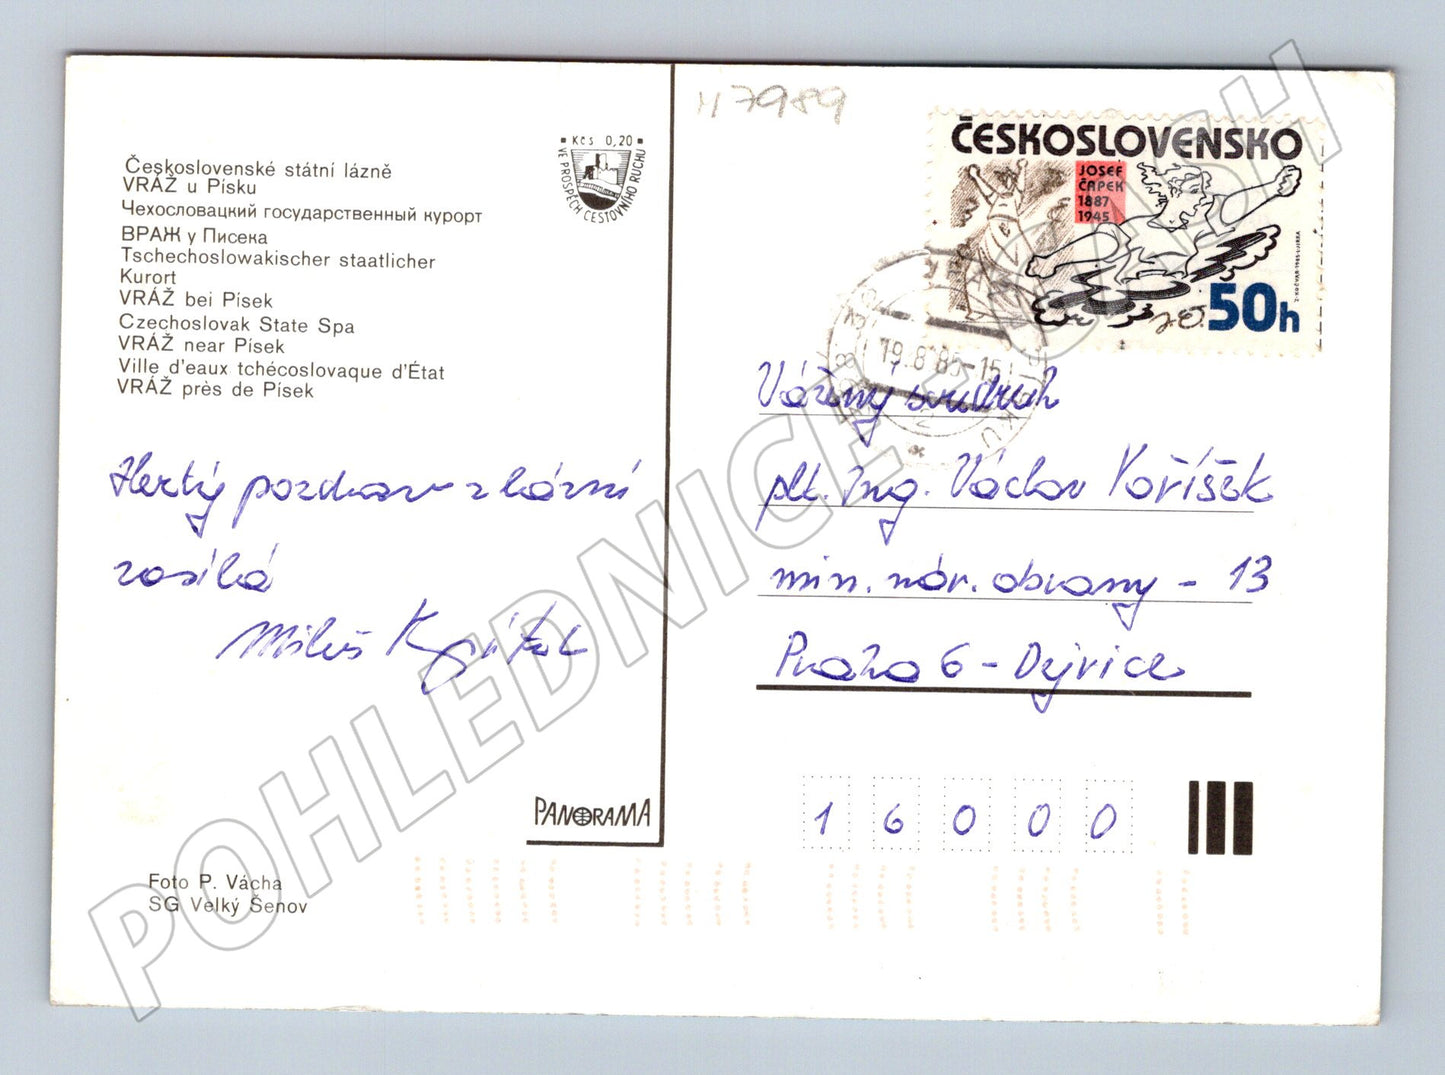 M 7989
Kčs 0,20
VE PROSPĚCH CESTOVNÍHO RUCHU
Československé státní lázně
VRÁŽ u Písku
Чехословацкий государственный курорт
ВРАЖ у Писека
Tschechoslowakischer staatlicher
Kurort
VRÁŽ bei Písek
Czechoslovak State Spa
VRÁŽ near Písek
Ville d'eaux tchécoslovaque d'État
VRÁŽ près de Písek
Hertý pozdrav z lázní
zasílá
Miluš
PANORAMA
Foto P. Vácha
SG Velký Šenov
ČESKOSLOVENSKO
JOSEF
ČAPEK
1887
1945
50h
19.8.86-15
Vážený soudruh
plt. Ing. Václav Voříšek
min. nár. obrany - 13
Praha 6 - Dejvice
1 6 0 0 0
POHLEDNICE CASH